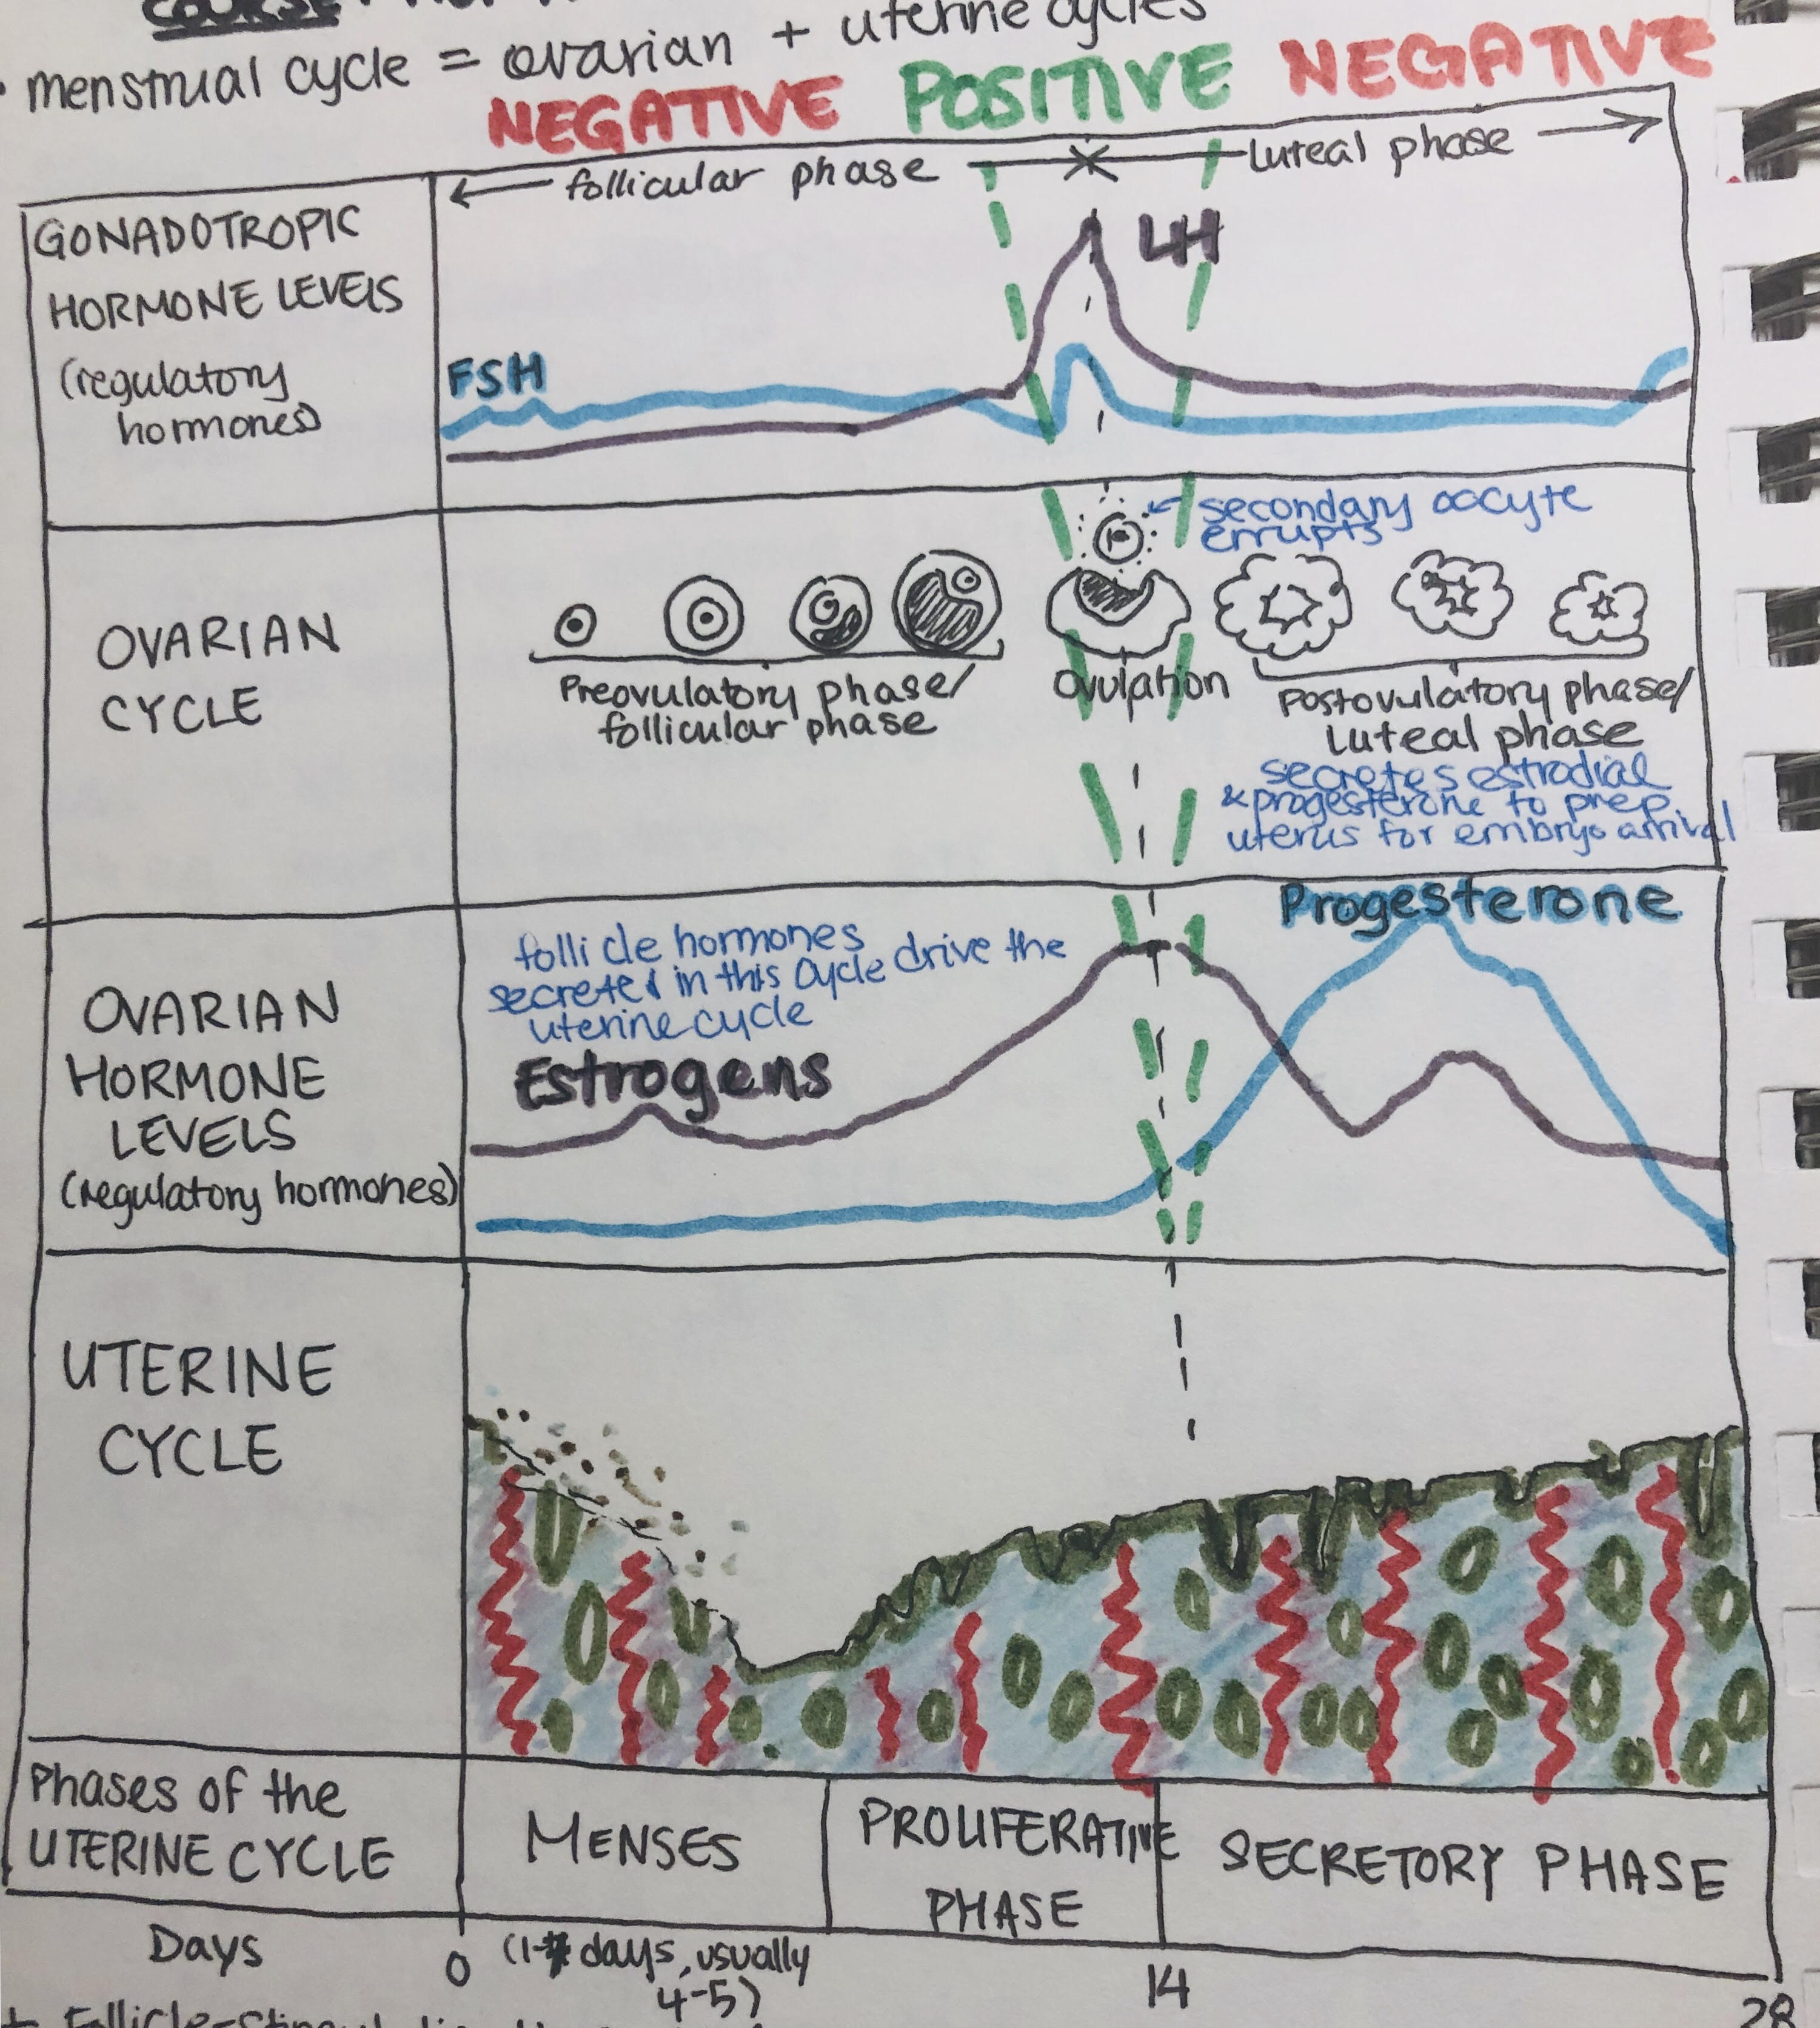 COURSE
• menstrual cycle = ovarian + uterine cycles
NEGATIVE POSITIVE NEGATIVE
← follicular phase × Luteal phase →
GONADOTROPIC
HORMONE LEVELS
(regulatory
hormones)
LH
FSH
OVARIAN
CYCLE
secondary oocyte
errupts
Preovulatory phase/
follicular phase
ovulation
Postovulatory phase/
Luteal phase
secretes estrodial
& progesterone to prep
uterus for embryo arrival
OVARIAN
HORMONE
LEVELS
(regulatory hormones)
Progesterone
follicle hormones
secreted in this cycle drive the
uterine cycle
Estrogens
UTERINE
CYCLE
Phases of the
UTERINE CYCLE
MENSES
PROLIFERATIVE
PHASE
SECRETORY PHASE
Days
0
(1-7 days, usually
4-5)
14
28